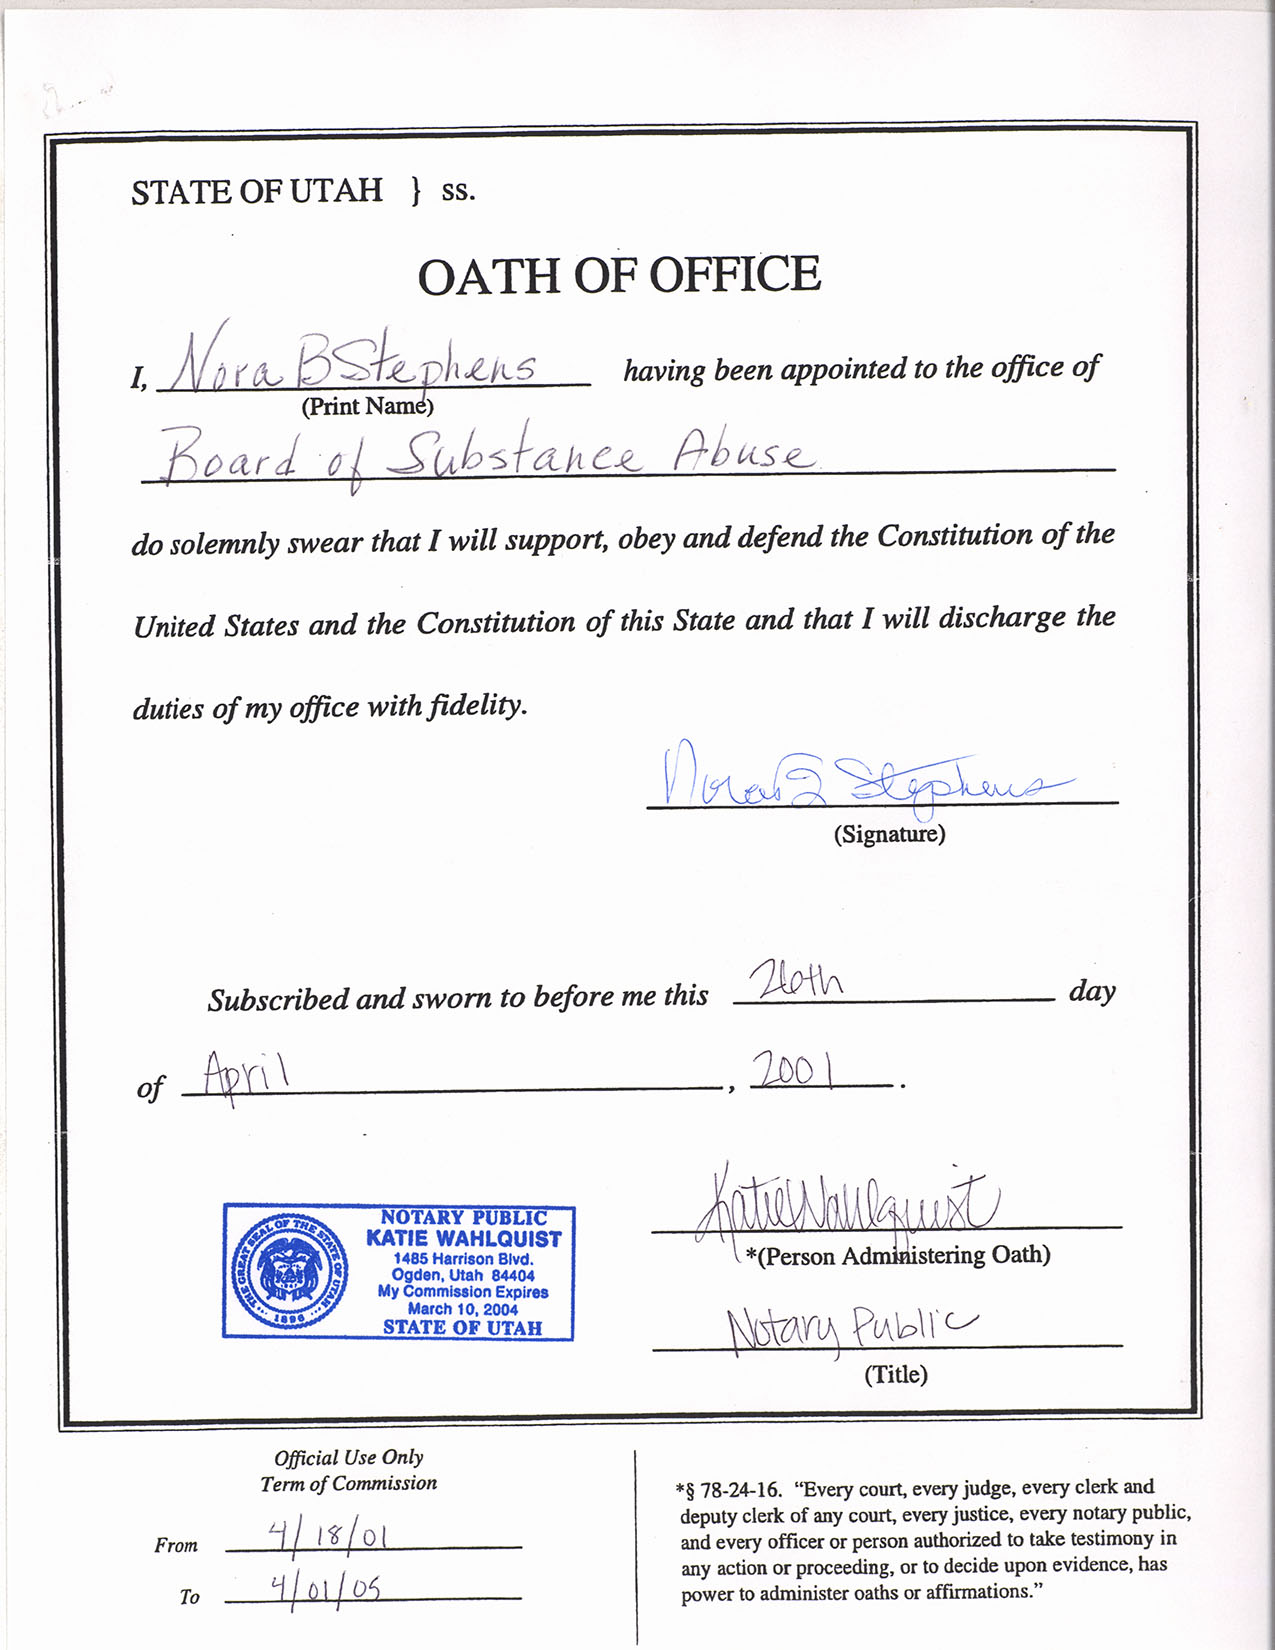 STATE OF UTAH } ss.
OATH OF OFFICE
I, Nora B Stephens having been appointed to the office of
(Print Name)
Board of Substance Abuse
do solemnly swear that I will support, obey and defend the Constitution of the
United States and the Constitution of this State and that I will discharge the
duties of my office with fidelity.
Nora B Stephens
(Signature)
Subscribed and sworn to before me this 26th day
of April, 2001.
Katie Wahlquist
*(Person Administering Oath)
Notary Public
(Title)
THE GREAT SEAL OF THE STATE OF UTAH
1896
NOTARY PUBLIC
KATIE WAHLQUIST
1485 Harrison Blvd.
Ogden, Utah 84404
My Commission Expires
March 10, 2004
STATE OF UTAH
Official Use Only
Term of Commission
From 4/18/01
To 4/01/05
*§ 78-24-16. “Every court, every judge, every clerk and
deputy clerk of any court, every justice, every notary public,
and every officer or person authorized to take testimony in
any action or proceeding, or to decide upon evidence, has
power to administer oaths or affirmations.”